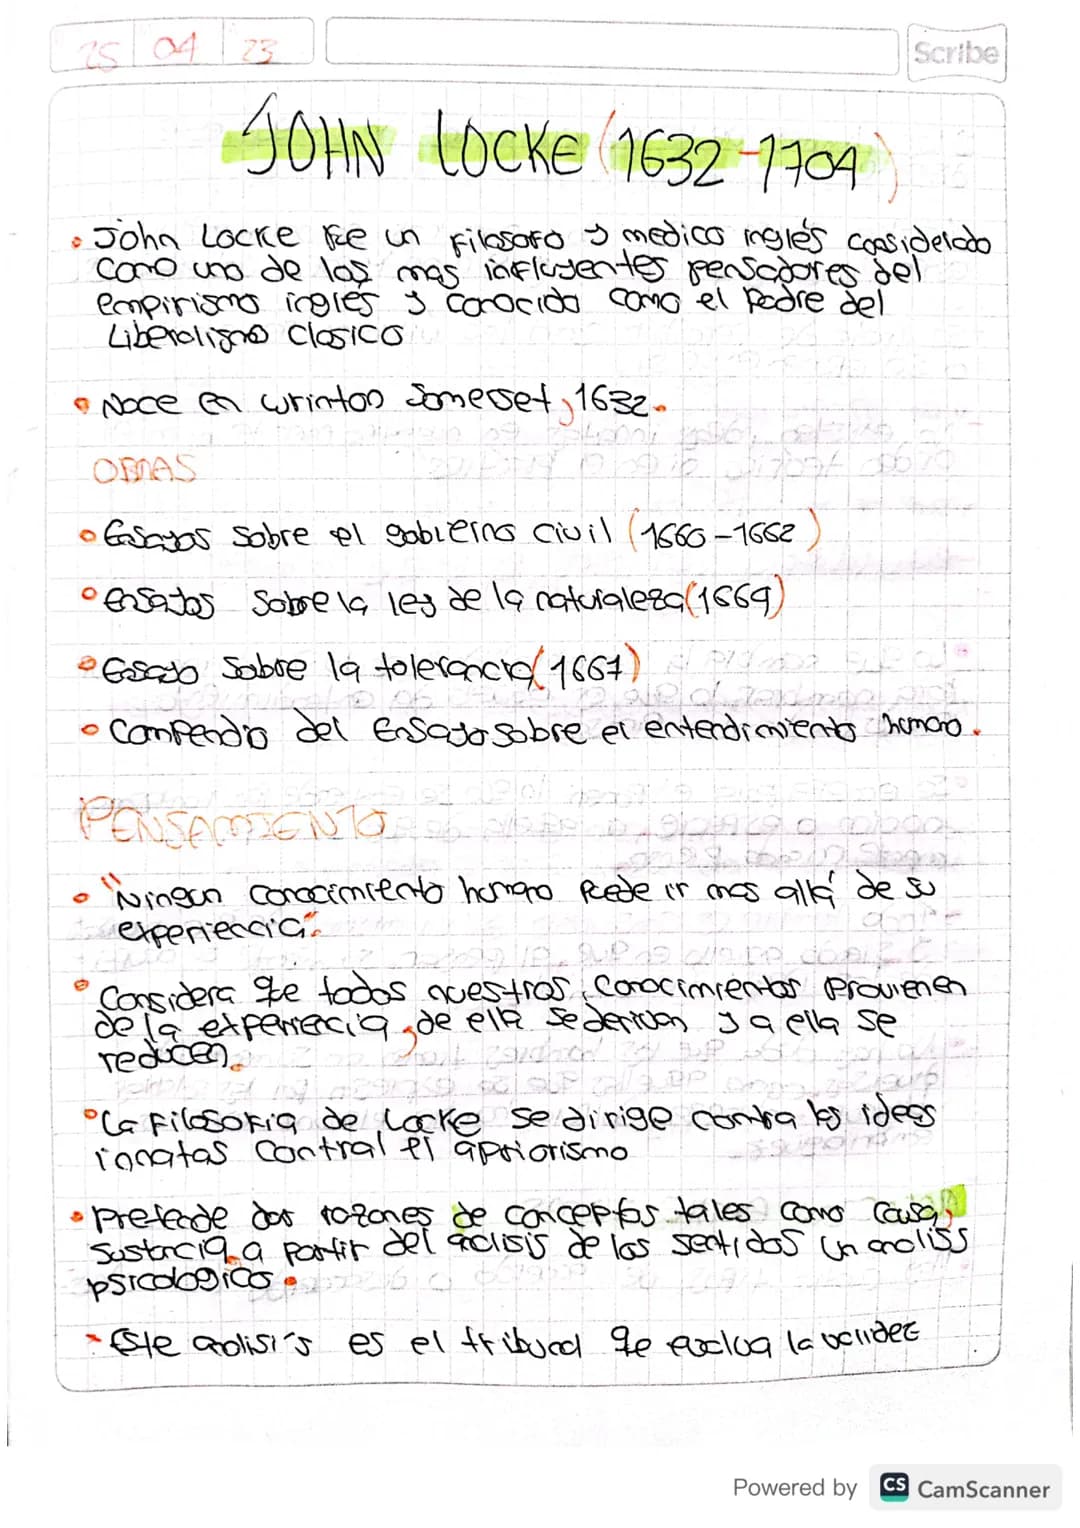 25 04 23
Scribe
JOHN LOCKE (1632-1704)
• John Locke fue un filosofo y medico inglés considerado
como uno de los mas influyentes pensadores del
empirismo inglés y conocido como el Padre del
Liberalismo Clasico
• Nace en wrinton Somerset, 1632.
OBRAS
• Ensayos sobre el gobierno civil (1660-1662)
• ensayos sobre la ley de la naturaleza (1664)
• Ensayo sobre la tolerancia (1667)
• Compendio del Ensayo sobre el entendimiento humano.
PENSAMIENTO
• "Ningun conocimiento humano puede ir mas allá de su
experiencia".
• Considera que todos nuestros conocimientos provienen
de la experiencia, de ella se derivan y a ella se
reducen.
• La Filosofia de Locke se dirige contra las ideas
innatas contra el apriorismo
• Pretende dar razones de conceptos tales como causa,
sustancia a partir del analisis de los sentidos un analisis
psicologico.
• Este analisis es el tribunal que evalua la validez
Powered by CS CamScanner